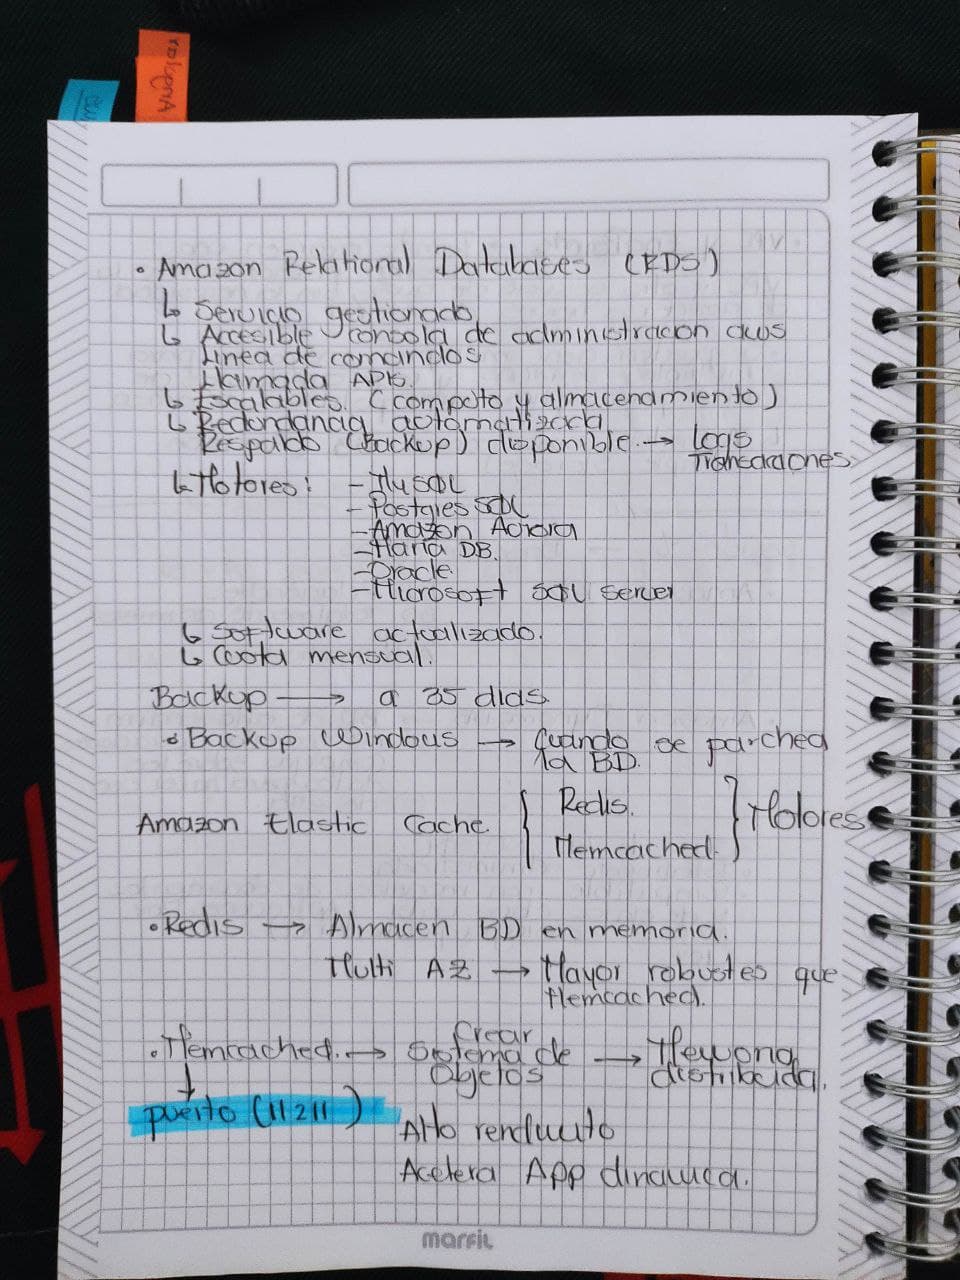 • Amazon Relational Databases (RDS)
↳ Servicio gestionado
↳ Accesible consola de administracion aws
Linea de comandos
Llamada APIs.
↳ Escalables. (computo y almacenamiento)
↳ Redundancia automatizada
Respaldo (Backup) disponible. → Logs
Transacciones.
↳ Motores: - MySQL
- Postgres SQL
- Amazon Aurora
- Maria DB.
- Oracle
- Microsoft SQL Server
↳ Software actualizado.
↳ Cuota mensual.
Backup → a 35 dias.
• Backup Windows → Cuando se parchea
la BD.
Amazon Elastic Cache. { Redis. } Motores
Memcached.
• Redis → Almacen BD en memoria.
Multi AZ → Mayor robustes que
Memcached.
• Memcached. → Crear
Sistema de
Objetos
→
distribuida.
↓
puerto (11211)
Alto
Acelera App dinamica.
marfil